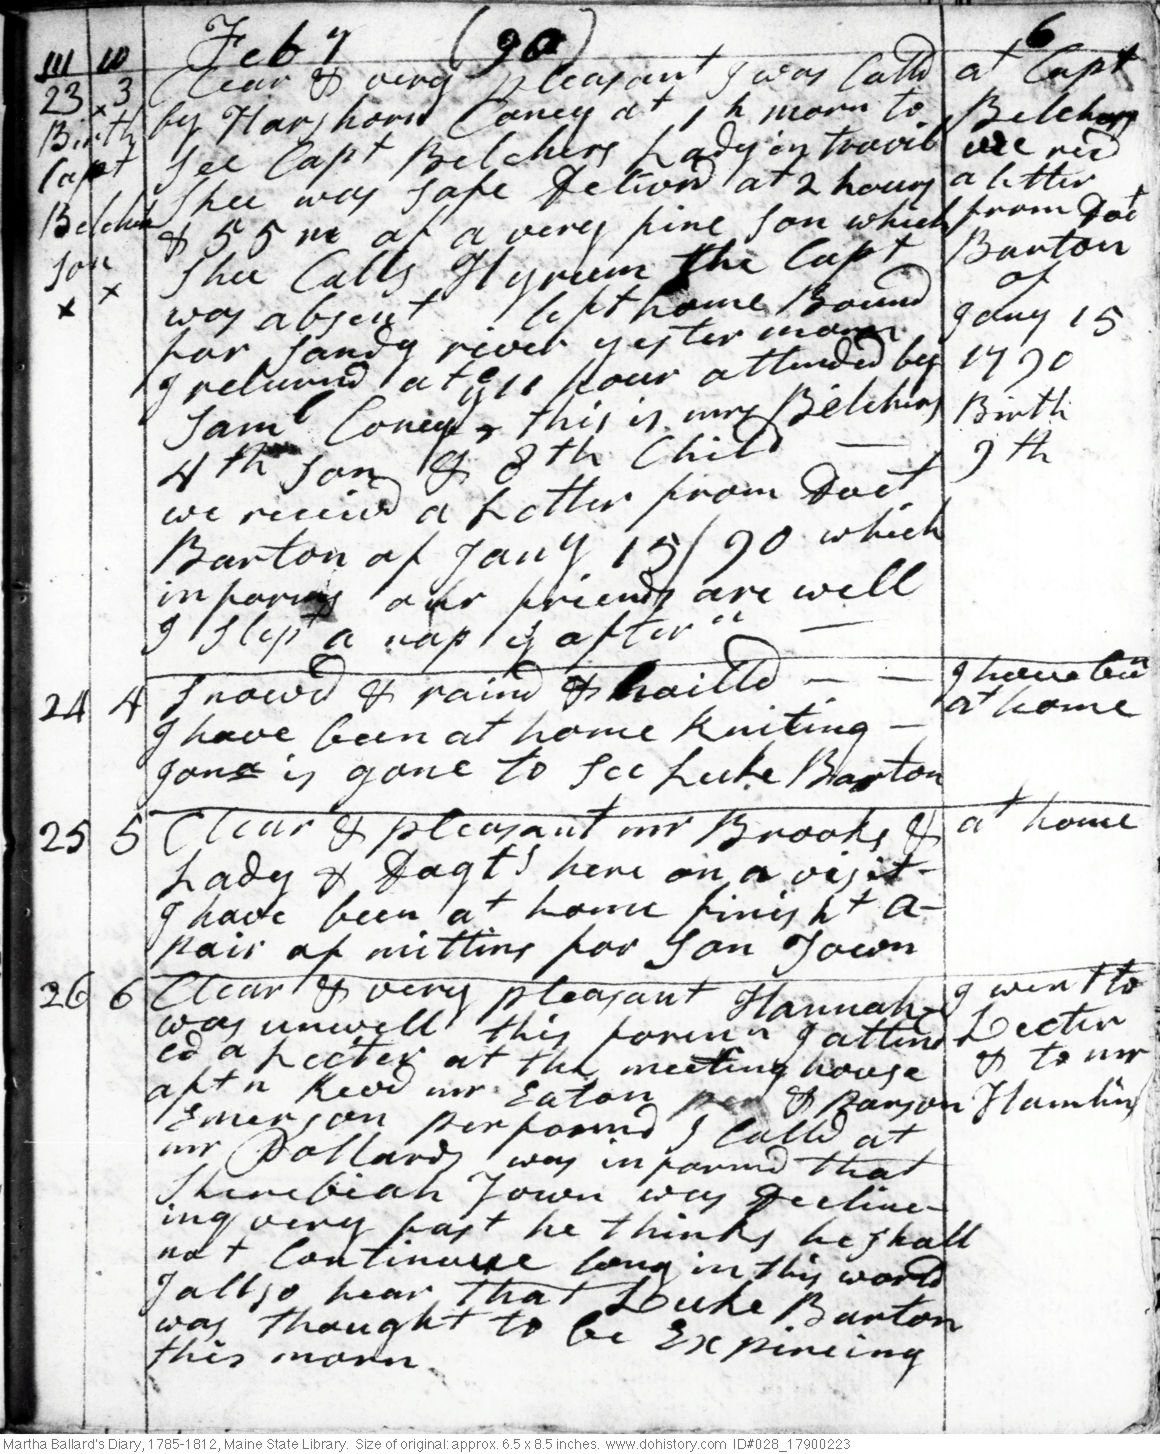 111 10 Feb 7 (90) 6
23 3 Clear & very pleasant I was Calld at Capt
Birth by Harshorn Coney at 1 h morn to Belchers
Capt See Capt Belchers Lady in travil we recd
Shee was safe Delivrd at 2 hours a letter
Belchers & 55 m of a very fine son which from Doct
Son Shee Calls Hyrum the Capt Barton
x x was absent left home Bound of
for Sandy river yester morn Jany 15
I returnd at 11 hour attended by 1790
Saml Coney, this is mrs Belchers Birth
4th son & 8th Child — 7th
we receivd a Letter from Doct
Barton of Jany 15/90 which
informs our friends are well
I Slept a nap ys aftern —
24 4 Snowd & raind & haild — — I have been
I have been at home Kniting — at home
is gone to See Luke Barton
25 5 Clear & pleasant mr Brooks & at home
Lady & Dagts here on a visit -
I have been at home finisht a-
pair of mittins for Son Town
26 6 Clear & very pleasant Hannah - I went to
was unwell this foren I attend Lecter
ed a Lecter at the meeting house & to mr
aftn Revd mr Eaton & parson Hamlins
Emerson performd I Calld at
mr Pollards was informd that
Sherebiah Town was decline-
ing very fast he thinks he shall
not Continuue long in this world
I allso hear that Luke Barton
was thought to be Expireing
this morn
Martha Ballard's Diary, 1785-1812, Maine State Library. Size of original: approx. 6.5 x 8.5 inches. www.dohistory.com ID#028_17900223